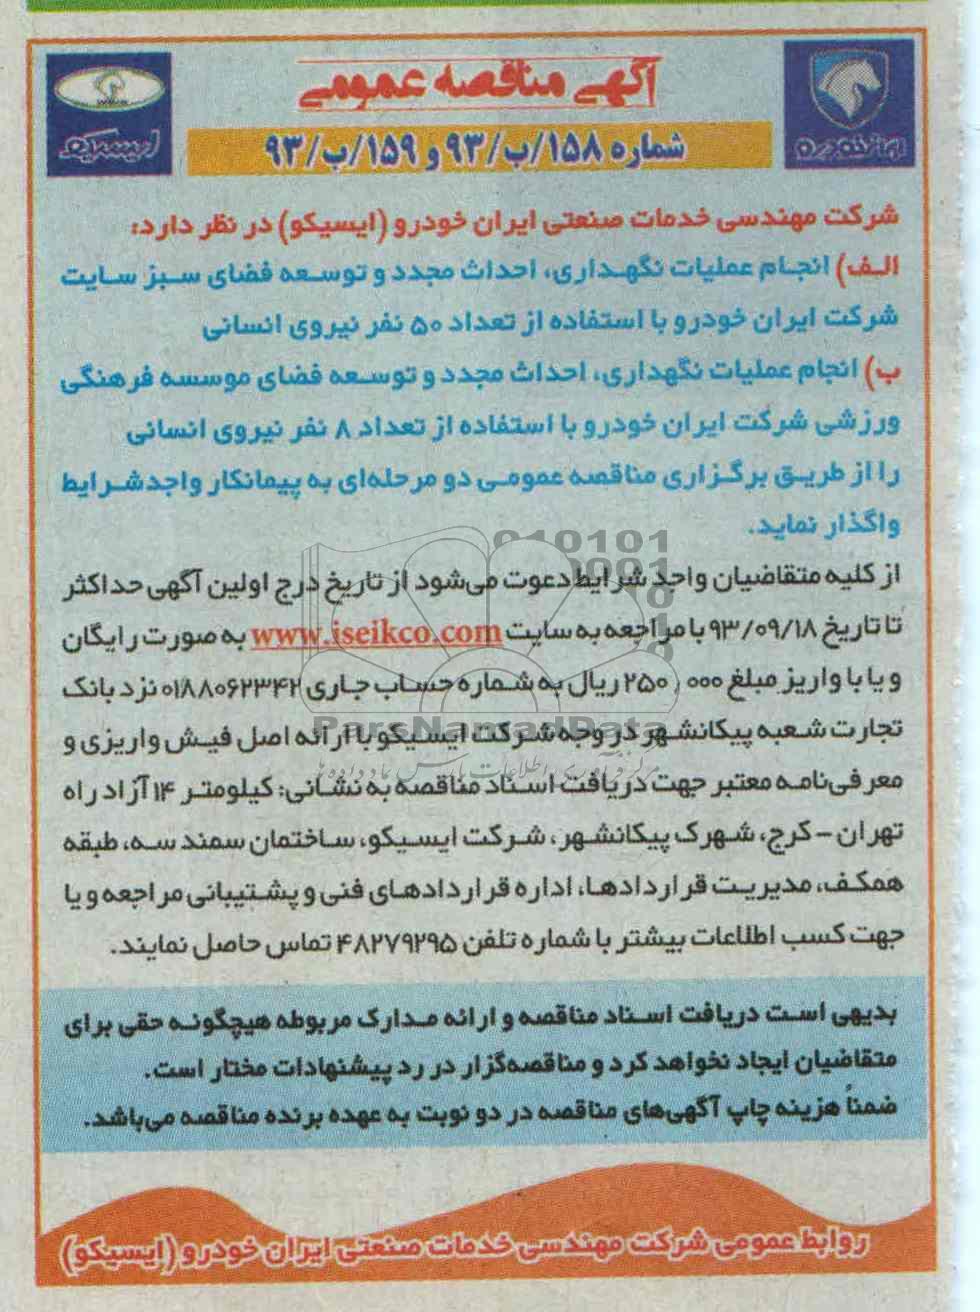 آگهی مناقصه عمومی
شماره ۱۵۸/ب/۹۳ و ۱۵۹/ب/۹۳
ایران خودرو
ایسیکو
شرکت مهندسی خدمات صنعتی ایران خودرو (ایسیکو) در نظر دارد:
الف) انجام عملیات نگهداری، احداث مجدد و توسعه فضای سبز سایت
شرکت ایران خودرو با استفاده از تعداد ۵۰ نفر نیروی انسانی
ب) انجام عملیات نگهداری، احداث مجدد و توسعه فضای موسسه فرهنگی
ورزشی شرکت ایران خودرو با استفاده از تعداد ۸ نفر نیروی انسانی
را از طریق برگزاری مناقصه عمومی دو مرحله‌ای به پیمانکار واجدشرایط
واگذار نماید.
از کلیه متقاضیان واجد شرایط دعوت می‌شود از تاریخ درج اولین آگهی حداکثر
تا تاریخ ۹۳/۰۹/۱۸ با مراجعه به سایت www.iseikco.com به صورت رایگان
و یا با واریز مبلغ ۲۵۰,۰۰۰ ریال به شماره حساب جاری ۰۱۸۸۰۶۲۳۴۲ نزد بانک
تجارت شعبه پیکانشهر در وجه شرکت ایسیکو با ارائه اصل فیش واریزی و
معرفی‌نامه معتبر جهت دریافت اسناد مناقصه به نشانی: کیلومتر ۱۴ آزاد راه
تهران - کرج، شهرک پیکانشهر، شرکت ایسیکو، ساختمان سمند سه، طبقه
همکف، مدیریت قراردادها، اداره قراردادهای فنی و پشتیبانی مراجعه و یا
جهت کسب اطلاعات بیشتر با شماره تلفن ۴۸۲۷۹۲۹۵ تماس حاصل نمایند.
بدیهی است دریافت اسناد مناقصه و ارائه مدارک مربوطه هیچگونه حقی برای
متقاضیان ایجاد نخواهد کرد و مناقصه‌گزار در رد پیشنهادات مختار است.
ضمناً هزینه چاپ آگهی‌های مناقصه در دو نوبت به عهده برنده مناقصه می‌باشد.
روابط عمومی شرکت مهندسی خدمات صنعتی ایران خودرو (ایسیکو)
ParsNamadData